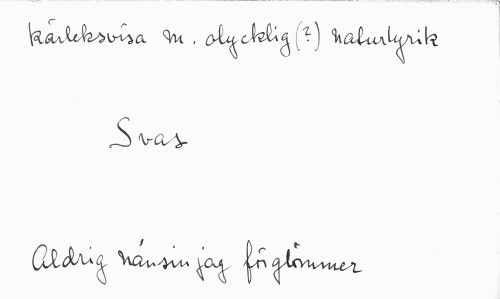 kärleksvisa m. olycklig(?) naturlyrik
Svas
Aldrig nånsin jag förglömmer